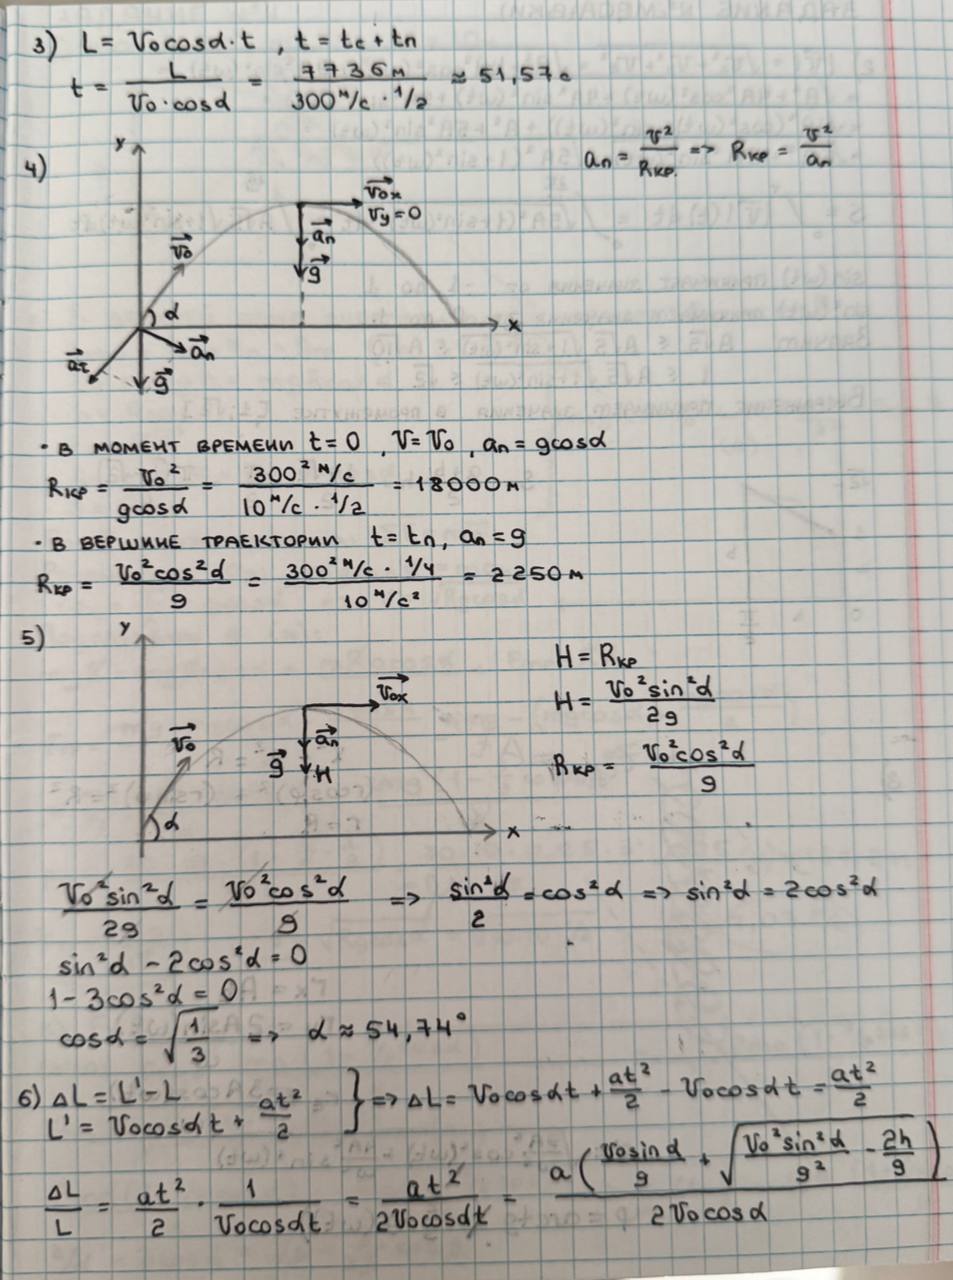 3) L = V₀cosα·t , t = tс + tп
t = L / (V₀·cosα) = 7736м / (300 м/с · 1/2) ≈ 51,57с
aₙ = v² / Rкр. => Rкр = v² / aₙ
4)
y
V₀ₓ
Vy = 0
aₙ
g
V₀
α
x
aₙ
aτ
g
· В МОМЕНТ ВРЕМЕНИ t = 0 , V = V₀ , aₙ = gcosα
Rкр = V₀² / (gcosα) = 300² м/с / (10 м/с · 1/2) = 18000м
· В ВЕРШИНЕ ТРАЕКТОРИИ t = tп, aₙ = g
Rкр = V₀²cos²α / g = (300² м/с · 1/4) / (10 м/с²) = 2250м
5)
y
V₀ₓ
V₀
aₙ
g
H
α
x
H = Rкр
H = V₀²sin²α / 2g
Rкр = V₀²cos²α / g
V₀²sin²α / 2g = V₀²cos²α / g => sin²α / 2 = cos²α => sin²α = 2cos²α
sin²α - 2cos²α = 0
1 - 3cos²α = 0
cosα = √(1/3) => α ≈ 54,74°
6) ΔL = L' - L
L' = V₀cosαt + at²/2 } => ΔL = V₀cosαt + at²/2 - V₀cosαt = at²/2
ΔL / L = at²/2 · 1 / (V₀cosαt) = at² / (2V₀cosαt) = a(V₀sinα/g + √(V₀²sin²α/g² - 2h/g)) / (2V₀cosα)